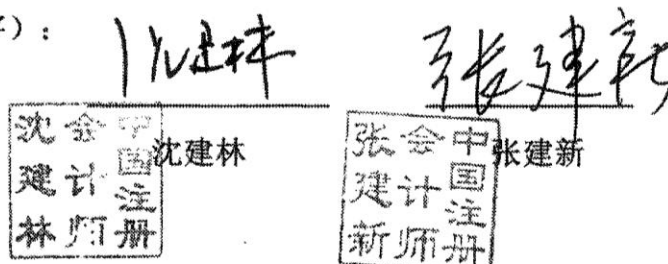 ）：
沈建林 张建新
沈建林 张建新
中国注册会计师沈建林
中国注册会计师张建新